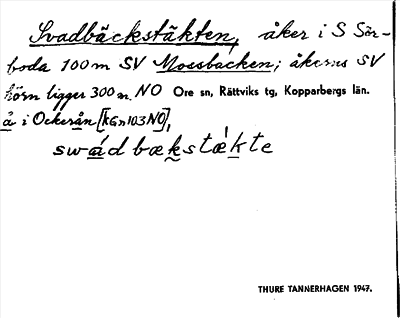 Svadbäckstäkten, åker i S Sör-
boda 100 m SV Mossbacken; åkerns SV
hörn ligger 300 m. NO Ore sn, Rättviks tg, Kopparbergs län.
å i Ockerån [kGn103NO],
swád bækstǽkte
THURE TANNERHAGEN 1947.